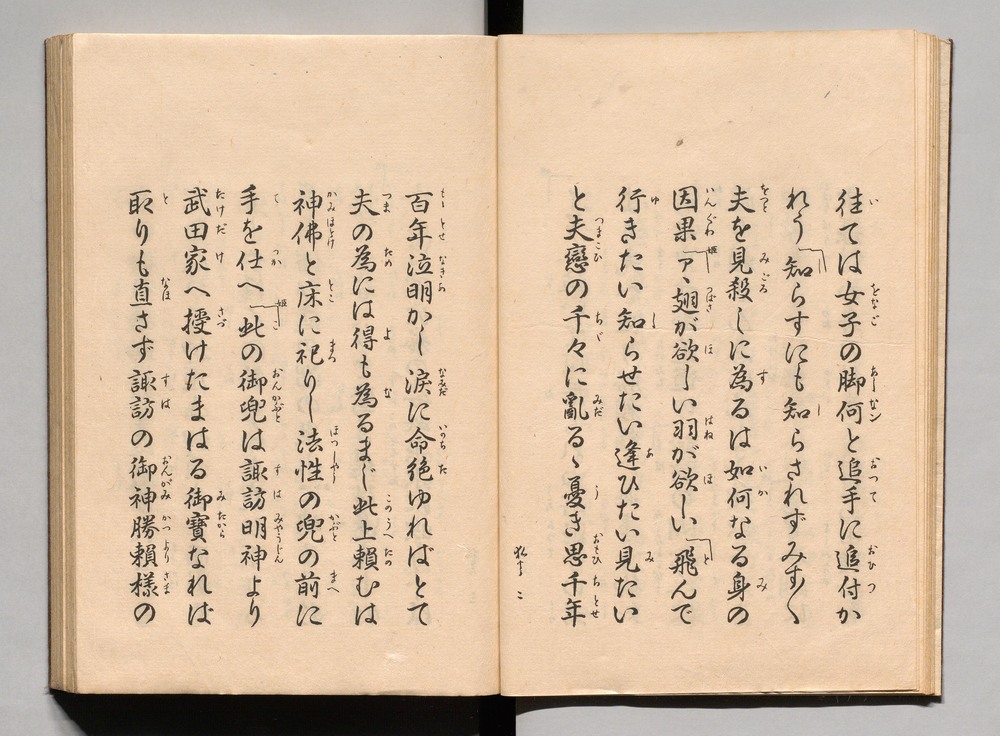 往ては女子の脚何と追手に追付か
れう知らすにも知らされずみす〱
夫を見殺しに為るは如何なる身の
因果アヽ翅が欲しい羽が欲しい飛んで
行きたい知らせたい逢ひたい見たい
と夫戀の千々に亂るゝ憂き思千年
百年泣明かし涙に命絶ゆればとて
夫の為には得も為るまじ此上頼むは
神佛と床に祀りし法性の兜の前に
手を仕へ此の御兜は諏訪明神より
武田家へ授けたまはる御寶なれば
取りも直さず諏訪の御神勝頼様の